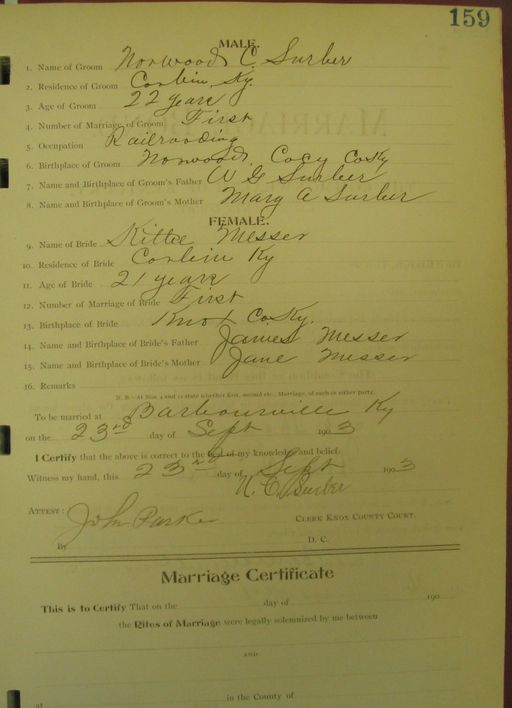 159
MALE.
1. Name of Groom Norwood C. Surber
2. Residence of Groom Corbin, Ky.
3. Age of Groom 22 years
4. Number of Marriage of Groom First
5. Occupation Railroading
6. Birthplace of Groom Norwood, Co Ky
7. Name and Birthplace of Groom's Father W G Surber
8. Name and Birthplace of Groom's Mother Mary A Surber
FEMALE.
9. Name of Bride Kittie Messer
10. Residence of Bride Corbin Ky
11. Age of Bride 21 years
12. Number of Marriage of Bride First
13. Birthplace of Bride Knox Co Ky.
14. Name and Birthplace of Bride's Father James Messer
15. Name and Birthplace of Bride's Mother Jane Messer
16. Remarks
N. B.—At Nos. 4 and 12 state whether first, second etc., Marriage, of each or either party.
To be married at Barbourville Ky
on the 23rd day of Sept 1903
I Certify that the above is correct to the best of my knowledge and belief.
Witness my hand, this 23rd day of Sept 1903
N. C. Surber
ATTEST: John Parker
CLERK KNOX COUNTY COURT.
By D. C.
Marriage Certificate
This is to Certify That on the day of 190
the Rites of Marriage were legally solemnized by me between
AND
at in the County of